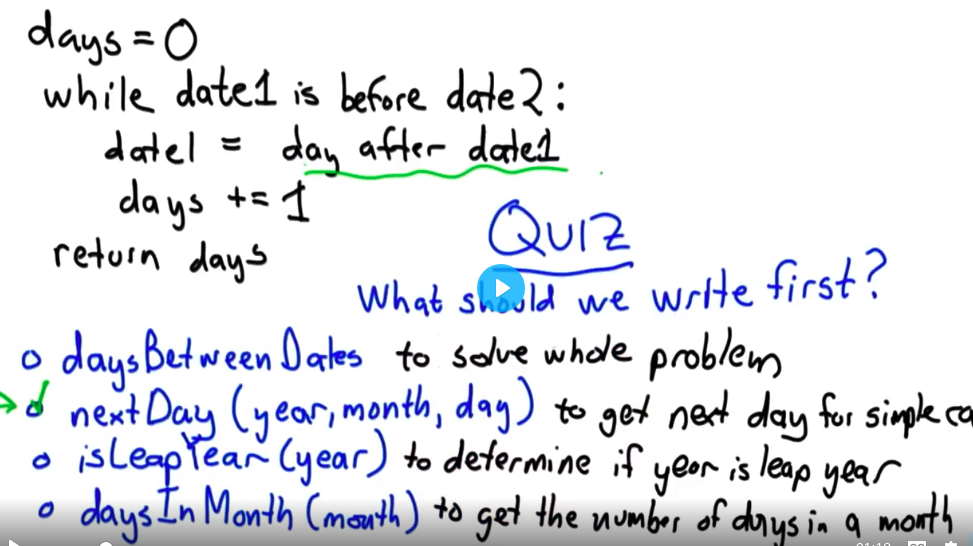 days = 0
while date1 is before date2:
date1 = day after date1
days += 1
return days
QUIZ
What should we write first?
daysBetweenDates to solve whole problem
nextDay (year, month, day) to get next day for simple
isLeapYear (year) to determine if year is leap year
daysInMonth (month) to get the number of days in a month